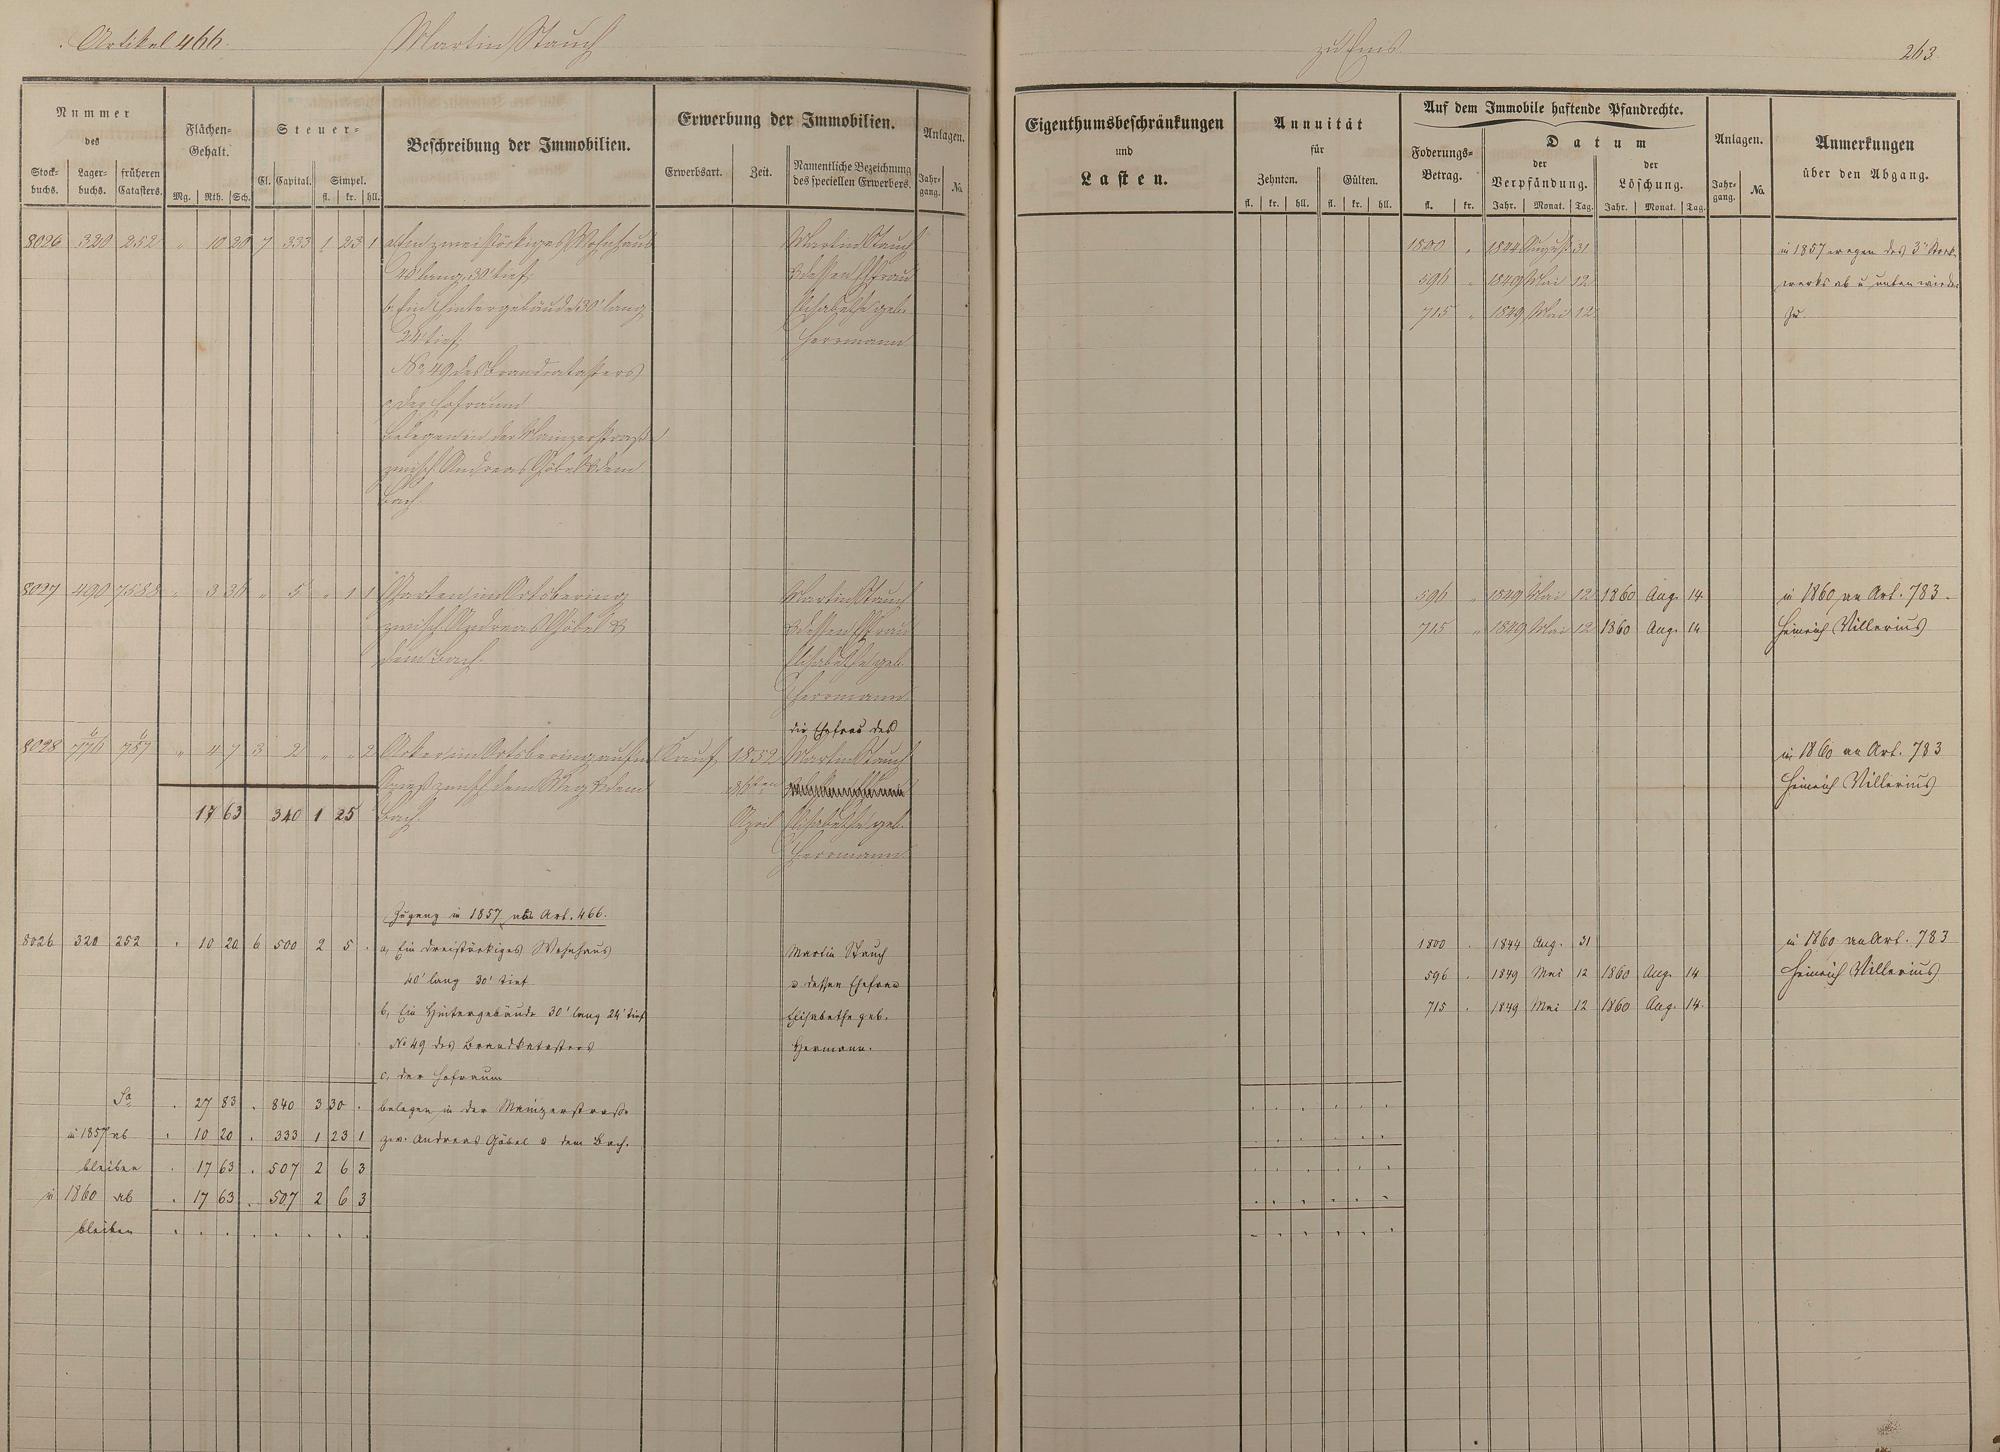 Artikel 466.
Martin Stauch
zu Ems
263.
Nummer
des
Stock-
buchs.
Lager-
buchs.
früheren
Catasters.
Flächen-
Gehalt.
Mg. Rth. Sch.
Steuer-
Cl. Capital. Simpel.
fl. kr. hll.
Beschreibung der Immobilien.
Erwerbung der Immobilien.
Erwerbsart. Zeit. Namentliche Bezeichnung
des speciellen Erwerbers.
Anlagen.
Jahr-
gang.
No.
Eigenthumsbeschränkungen
und
Lasten.
Annuität
für
Zehnten. Gülten.
fl. kr. hll. fl. kr. hll.
Auf dem Immobile haftende Pfandrechte.
Foderungs-
Betrag.
fl. kr.
Datum
der
Verpfändung.
Jahr. Monat. Tag.
der
Löschung.
Jahr. Monat. Tag.
Anlagen.
Jahr-
gang.
No.
Anmerkungen
über den Abgang.
8026 320 252 " 10 20 7 333 1 23 1 a, Ein zweistöckiges Wohnhaus Martin Stauch 1800 " 1844 August 31 in 1857 wegen des 3ten Stock-
40' lang, 30' tief; & dessen Ehefrau 596 " 1849 Mai 12 werks ab u. unten wieder
b, Ein Hintergebäude 30' lang Elisabetha geb. 715 " 1849 Mai 12 zu
24' tief; Herrmann
No 49 des Brandcatasters
c, der Hofraum
belegen in der Mainzerstraße
zwisch. Andreas Göbel & dem
Bach.
8027 490 7588 " 3 36 " 5 " 1 1 Garten im Ortsbering Martin Stauch 596 " 1849 Mai 12 1860 Aug. 14 in 1860 an Art. 783.
zwisch. Andreas Göbel & & dessen Ehefrau 715 " 1849 Mai 12 1860 Aug. 14 Heinrich Villerius
dem Bach. Elisabetha geb.
Herrmann
die Ehefrau des
8028 776 757 " 4 7 3 2 " " 2 Acker im Ortsbering auf'm Kauf 1852 Martin Stauch in 1860 an Art. 783
zwisch. dem Weg & dem Heinrich Villerius
17 63 340 1 25 Bach. April Elisabetha geb.
Herrmann
Zugang in 1857 aus Art. 466.
8026 320 252 . 10 20 6 500 2 5 . a, Ein dreistöckiges Wohnhaus Martin Stauch 1800 . 1844 Aug. 31 in 1860 an Art. 783
40' lang 30' tief u dessen Ehefrau 596 . 1849 Mai 12 1860 Aug. 14 Heinrich Villerius
b, Ein Hintergebäude 30' lang 24' tief Elisabetha geb. 715 . 1849 Mai 12 1860 Aug. 14.
No 49 des Brandkatasters Hermann.
c, der Hofraum
Sa . 27 83 . 840 3 30 . belegen in der Mainzerstraße
in 1857 ab . 10 20 . 333 1 23 1 zw. Andreas Göbel u dem Bach.
bleiben . 17 63 . 507 2 6 3
in 1860 ab . 17 63 . 507 2 6 3
bleiben . . . . . . . .